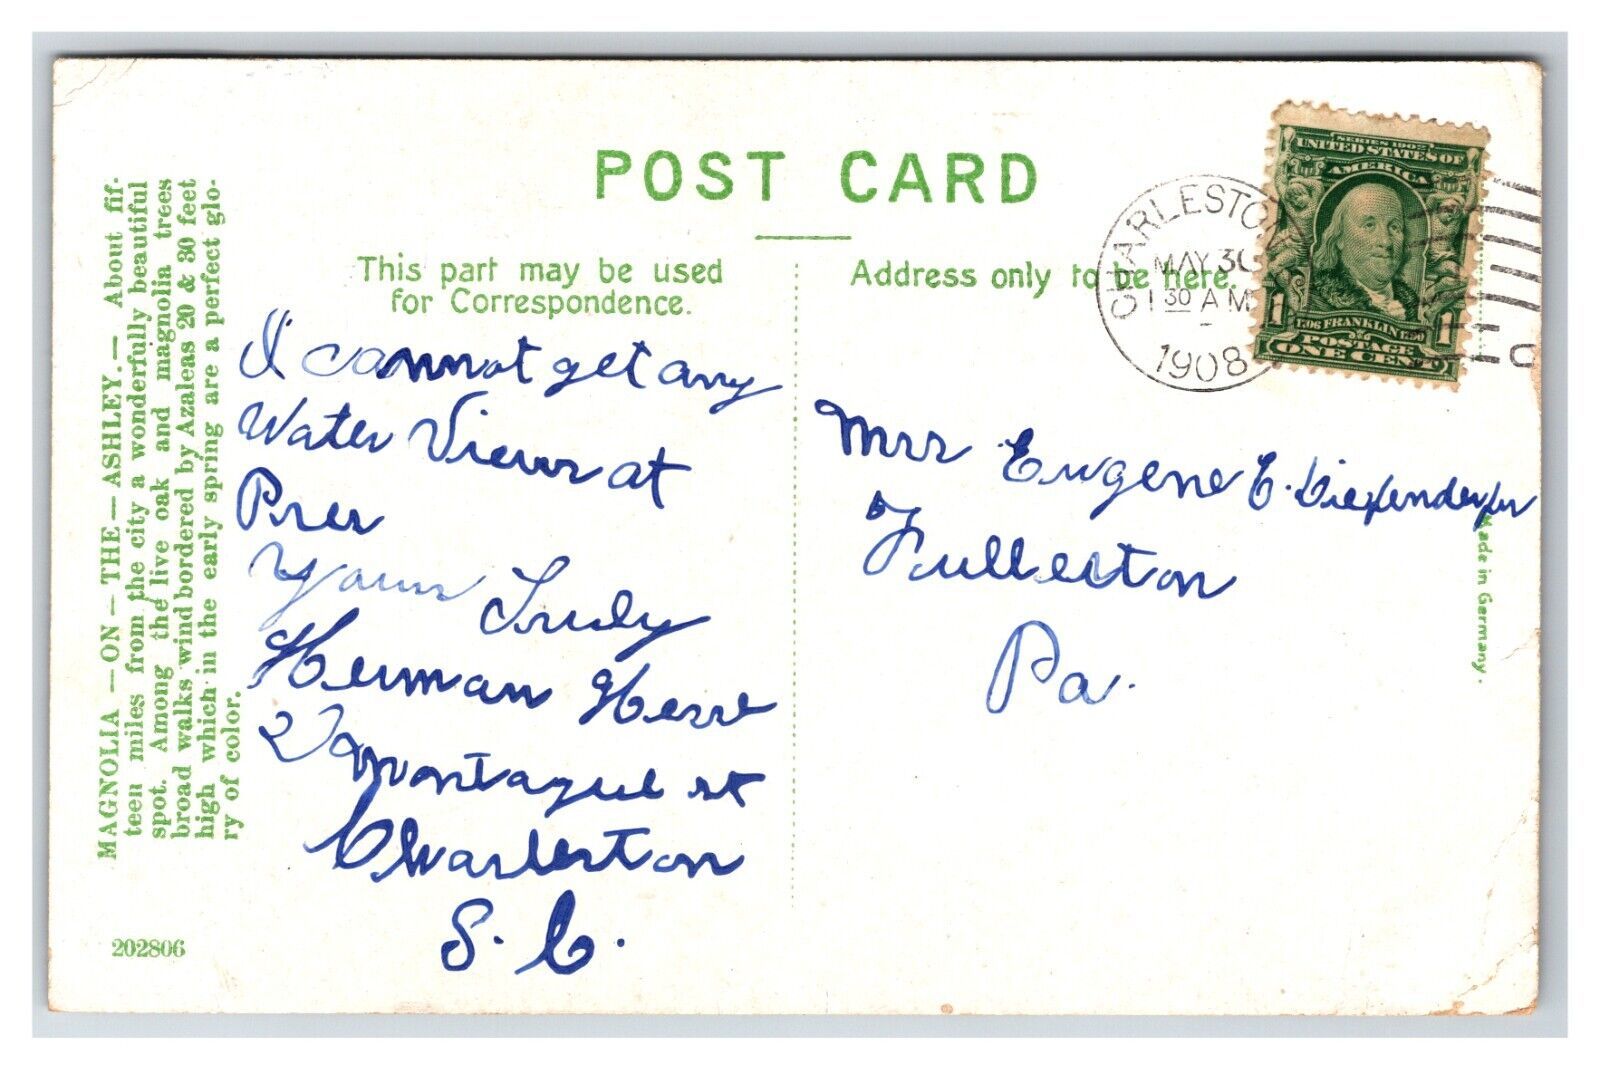 POST CARD
This part may be used
for Correspondence.
Address only to be here.
MAGNOLIA—ON—THE—ASHLEY.—About fif-
teen miles from the city a wonderfully beautiful
spot. Among the live oak and magnolia trees
broad walks wind bordered by Azaleas 20 & 30 feet
high which in the early spring are a perfect glo-
ry of color.
202806
I cannot get any
Water View at
Pres
Yours Truly
Herman Hesse
Montague st
Charleston
S. C.
CHARLESTON
MAY 30
1 30 AM
1908
SERIES 1902
UNITED STATES OF
AMERICA
1 1
1706 FRANKLIN 1790
POSTAGE
ONE CENT
Mrs Eugene E. Diefenderfer
Fullerton
Pa.
Made in Germany.